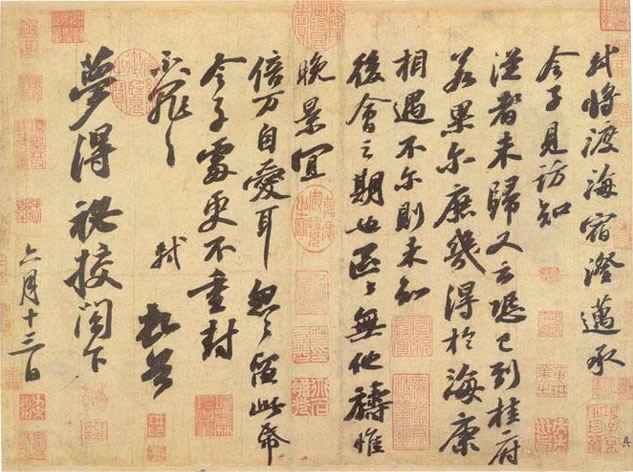 軾將渡海宿澄邁承
令子見訪知
從者未歸又云恐已到桂府
若果尔庶幾得於海康
相遇不尔則未知
後會之期也區々無他禱惟
晚景宜
倍万自愛耳忽々留此帋
令子處更不重封
不罪々 軾頓首
夢得祕校閣下
六月十三日